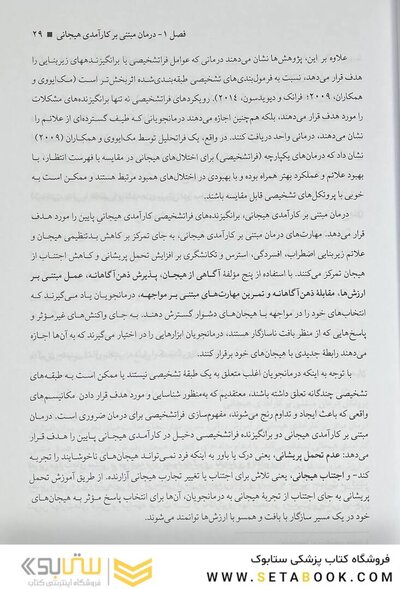 فصل ۱- درمان مبتنی بر کارآمدی هیجانی / ۲۹
علاوه بر این، پژوهش‌ها نشان می‌دهند درمانی که عوامل فراتشخیصی یا برانگیزنده‌های زیربنایی را
هدف قرار می‌دهد، نسبت به فرمول‌بندی‌های تشخیصی طبقه‌بندی‌شده اثربخش‌تر است (مک‌ایووی و
همکاران، ۲۰۰۹؛ فرانک و دیویدسون، ۲۰۱۴). رویکردهای فراتشخیصی نه تنها برانگیزنده‌های مشکلات
را مورد هدف قرار می‌دهند، بلکه هم‌چنین اجازه می‌دهند درمانجویانی که طیف گسترده‌ای از علائم را
نشان می‌دهند، درمانی واحد دریافت کنند. در واقع، یک فراتحلیل توسط مک‌ایووی و همکاران (۲۰۰۹)
نشان داد که درمان‌های یکپارچه (فراتشخیصی) برای اختلال‌های هیجانی در مقایسه با فهرست انتظار، با
بهبود علائم و عملکرد بهتر همراه بوده و با بهبودی در اختلال‌های همبود مرتبط هستند و ممکن است به
خوبی با پروتکل‌های تشخیصی قابل مقایسه باشند.
درمان مبتنی بر کارآمدی هیجانی، برانگیزنده‌های فراتشخیصی کارآمدی هیجانی پایین را مورد هدف
قرار می‌دهد. مهارت‌های درمان مبتنی بر کارآمدی هیجانی، به جای تمرکز بر کاهش بدتنظیمی هیجان و
علائم زیربنایی اضطراب، افسردگی، استرس و تکانشگری بر افزایش تحمل پریشانی و کاهش اجتناب از
هیجان تمرکز می‌کنند. با استفاده از پنج مؤلفهٔ آگاهی از هیجان، پذیرش ذهن آگاهانه، عمل مبتنی بر
ارزش‌ها، مقابلهٔ ذهن آگاهانه و تمرین مهارت‌های مبتنی بر مواجهه، درمانجویان یاد می‌گیرند که
انتخاب‌های خود را در مواجهه با هیجان‌های دشوار گسترش دهند. به جای واکنش‌های غیرمؤثر یا
پاسخ‌هایی که از منظر بافت ناسازگار هستند، درمانجویان ابزارهایی را در اختیار می‌گیرند که به آن‌ها اجازه
می‌دهند رابطهٔ جدیدی با هیجان‌های خود برقرار کنند.
با توجه به اینکه درمانجویان اغلب متعلق به یک طبقهٔ تشخیصی نیستند یا ممکن است به طبقه‌های
تشخیصی چندگانه تعلق داشته باشند، معتقدیم که به‌منظور شناسایی و مورد هدف قرار دادن مکانیسم‌های
واقعی که باعث ایجاد و تداوم رنج می‌شوند، مفهوم‌سازی فراتشخیصی برای درمان ضروری است. درمان
مبتنی بر کارآمدی هیجانی دو برانگیزنده فراتشخیصی دخیل در کارآمدی هیجانی پایین را هدف قرار
می‌دهد: عدم تحمل پریشانی، یعنی درک یا باور به اینکه فرد نمی‌تواند هیجان‌های ناخوشایند را تجربه
کند- و اجتناب هیجانی، یعنی تلاش برای اجتناب یا تغییر تجارب هیجانی آزارنده. از طریق آموزش تحمل
پریشانی به جای اجتناب از تجربهٔ هیجانی به درمانجویان، آن‌ها برای انتخاب پاسخ مؤثر به هیجان‌های
خود در یک مسیر سازگار با بافت و همسو با ارزش‌ها توانمند می‌شوند.
فروشگاه کتاب پزشکی ستابوک
WWW.SETABOOK.COM
ستابوک
فروشگاه اینترنتی کتاب